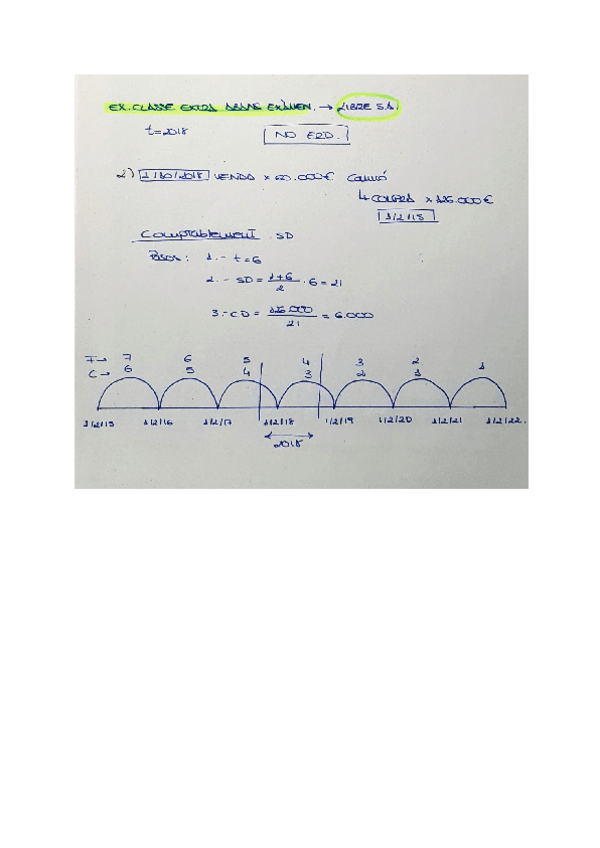 EX. CLASSE EXTRA ABANS EXAMEN. → LIBRE S.A.
t=2018 NO ERD.
2) 1/10/2018 VENDA x 60.000€ camió
↳ COMPRA x 126.000€
1/2/15
Comptablement SD
Pasos: 1.- t=6
2.- SD = 1+6/2 · 6 = 21
3.- CD = 126.000/21 = 6.000
F→ 7 6 5 4 3 2 1
C→ 6 5 4 3 2 1
1/2/15 1/2/16 1/2/17 1/2/18 1/2/19 1/2/20 1/2/21 1/2/22.
2018